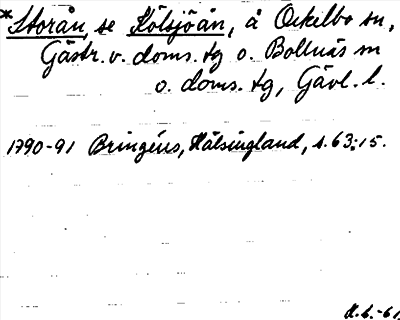 *Storån, se Kölsjöån, å Ockelbo sn,
Gästr. v. doms. tg o. Bollnäs sn
o. doms. tg, Gävl. l.
1790-91 Bringéus, Hälsingland, s. 63:15.